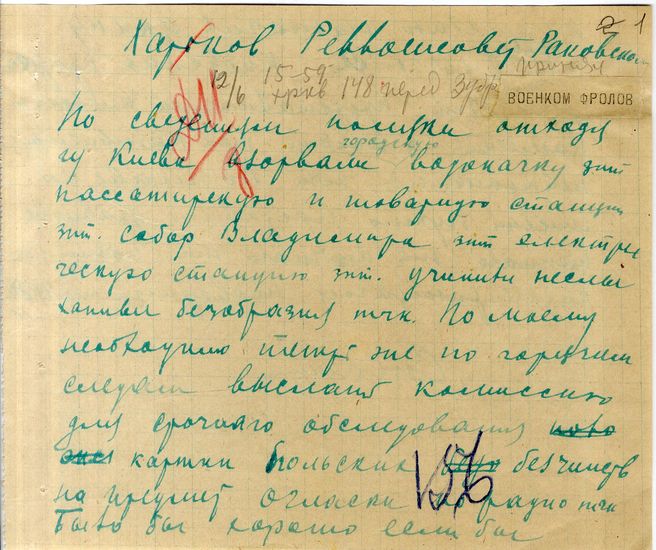 2 1
Харьков Реввоенсовет Раковскому
12/6 15-59 хркв 148 перед Зубр принял
ВОЕНКОМ ФРОЛОВ
По сведениям поляки отходя
из Киева взорвали городскую водокачку зпт
пассажирскую и товарную станции
зпт. собор Владимира зпт електри
ческую станцию зпт. учинили неслы
ханныи безобразия тчк. По моему
необходимо теперь же по горячим
следам выслать комиссию
для срочного обследования
картин польских безчинств
на предмет огласки по радио тчк
Было бы хорошо если бы